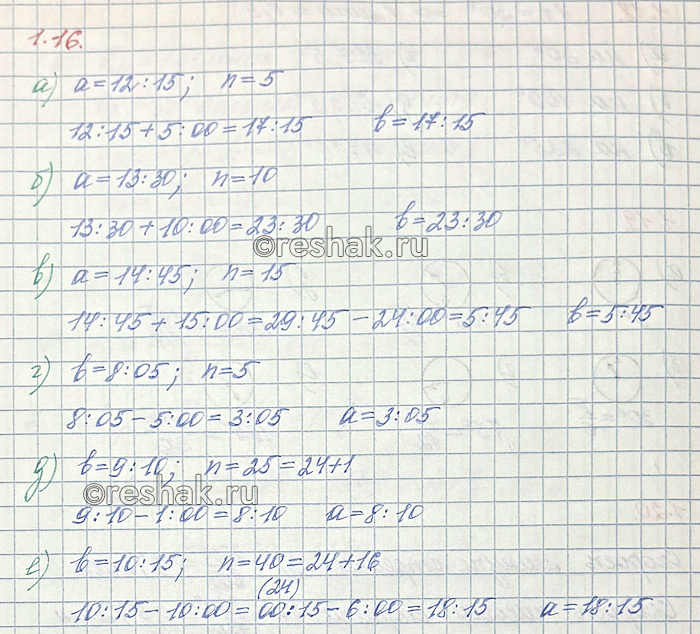 1.16.
а) a=12:15; n=5
12:15+5:00=17:15 b=17:15
б) a=13:30; n=10
13:30+10:00=23:30 b=23:30
©reshak.ru
в) a=14:45; n=15
14:45+15:00=29:45-24:00=5:45 b=5:45
г) b=8:05; n=5
8:05-5:00=3:05 a=3:05
д) b=9:10; n=25=24+1
©reshak.ru
9:10-1:00=8:10 a=8:10
е) b=10:15; n=40=24+16
(24)
10:15-10:00=00:15-6:00=18:15 a=18:15